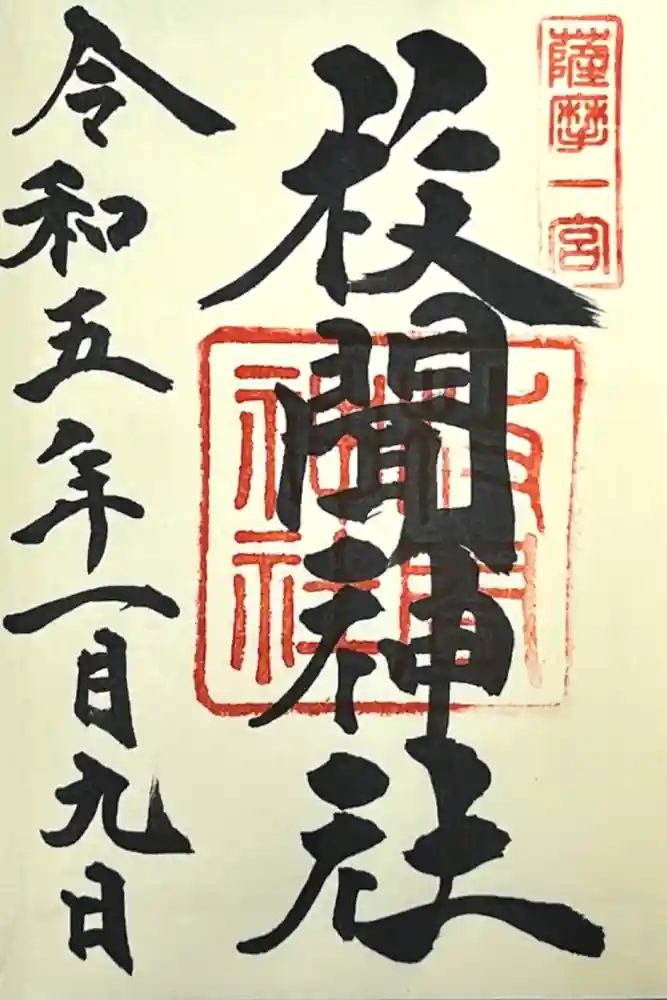 薩摩一宮
枚聞神社
枚聞
神社
令和五年一月九日